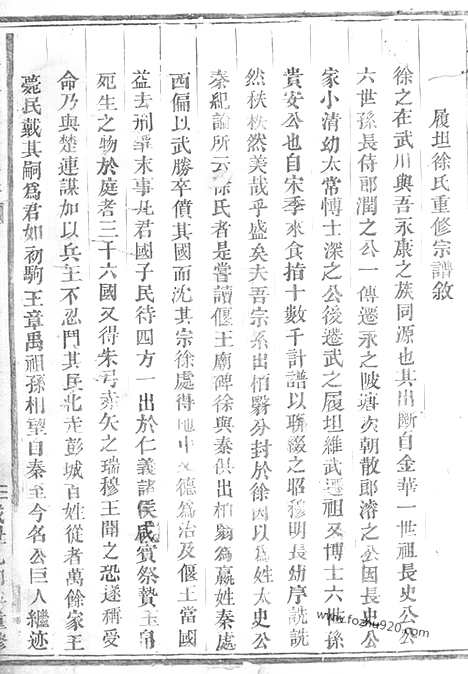 履坦徐氏重修宗譜敘
徐之在武川與吾永康之族同源也其出斷自金華一世祖長史公公
六世孫長侍郎潤之公一傳遷永之陂塘次朝散郎濬之公因長史公
家小清幼太常博士深之公後遷武之履坦維武遷祖又博士六世孫
貴安公也自宋季來食指十數千計譜以聯綴之昭穆明長幼序詵詵
然秩秩然美哉乎盛矣夫吾宗系出柏翳分封於徐因以爲姓太史公
秦紀論所云徐氏者是嘗讀偃王廟碑徐與秦俱出柏翳爲嬴姓秦處
西偏以武勝卒僨其國而沈其宗徐處得地中文德爲治及偃王當國
益去刑爭末事君國子民待四方一出於仁義諸侯咸賓祭贄玉帛
死生之物於庭者三十六國又得朱弓赤矢之瑞穆王聞之恐遂稱受
命乃與楚連謀加以兵王不忍鬥其民北走彭城百姓從者萬餘家王
薨民戴其嗣爲君如初駒王章禹祖孫相望自秦至今名公巨人繼迹
www.fozhu920.com